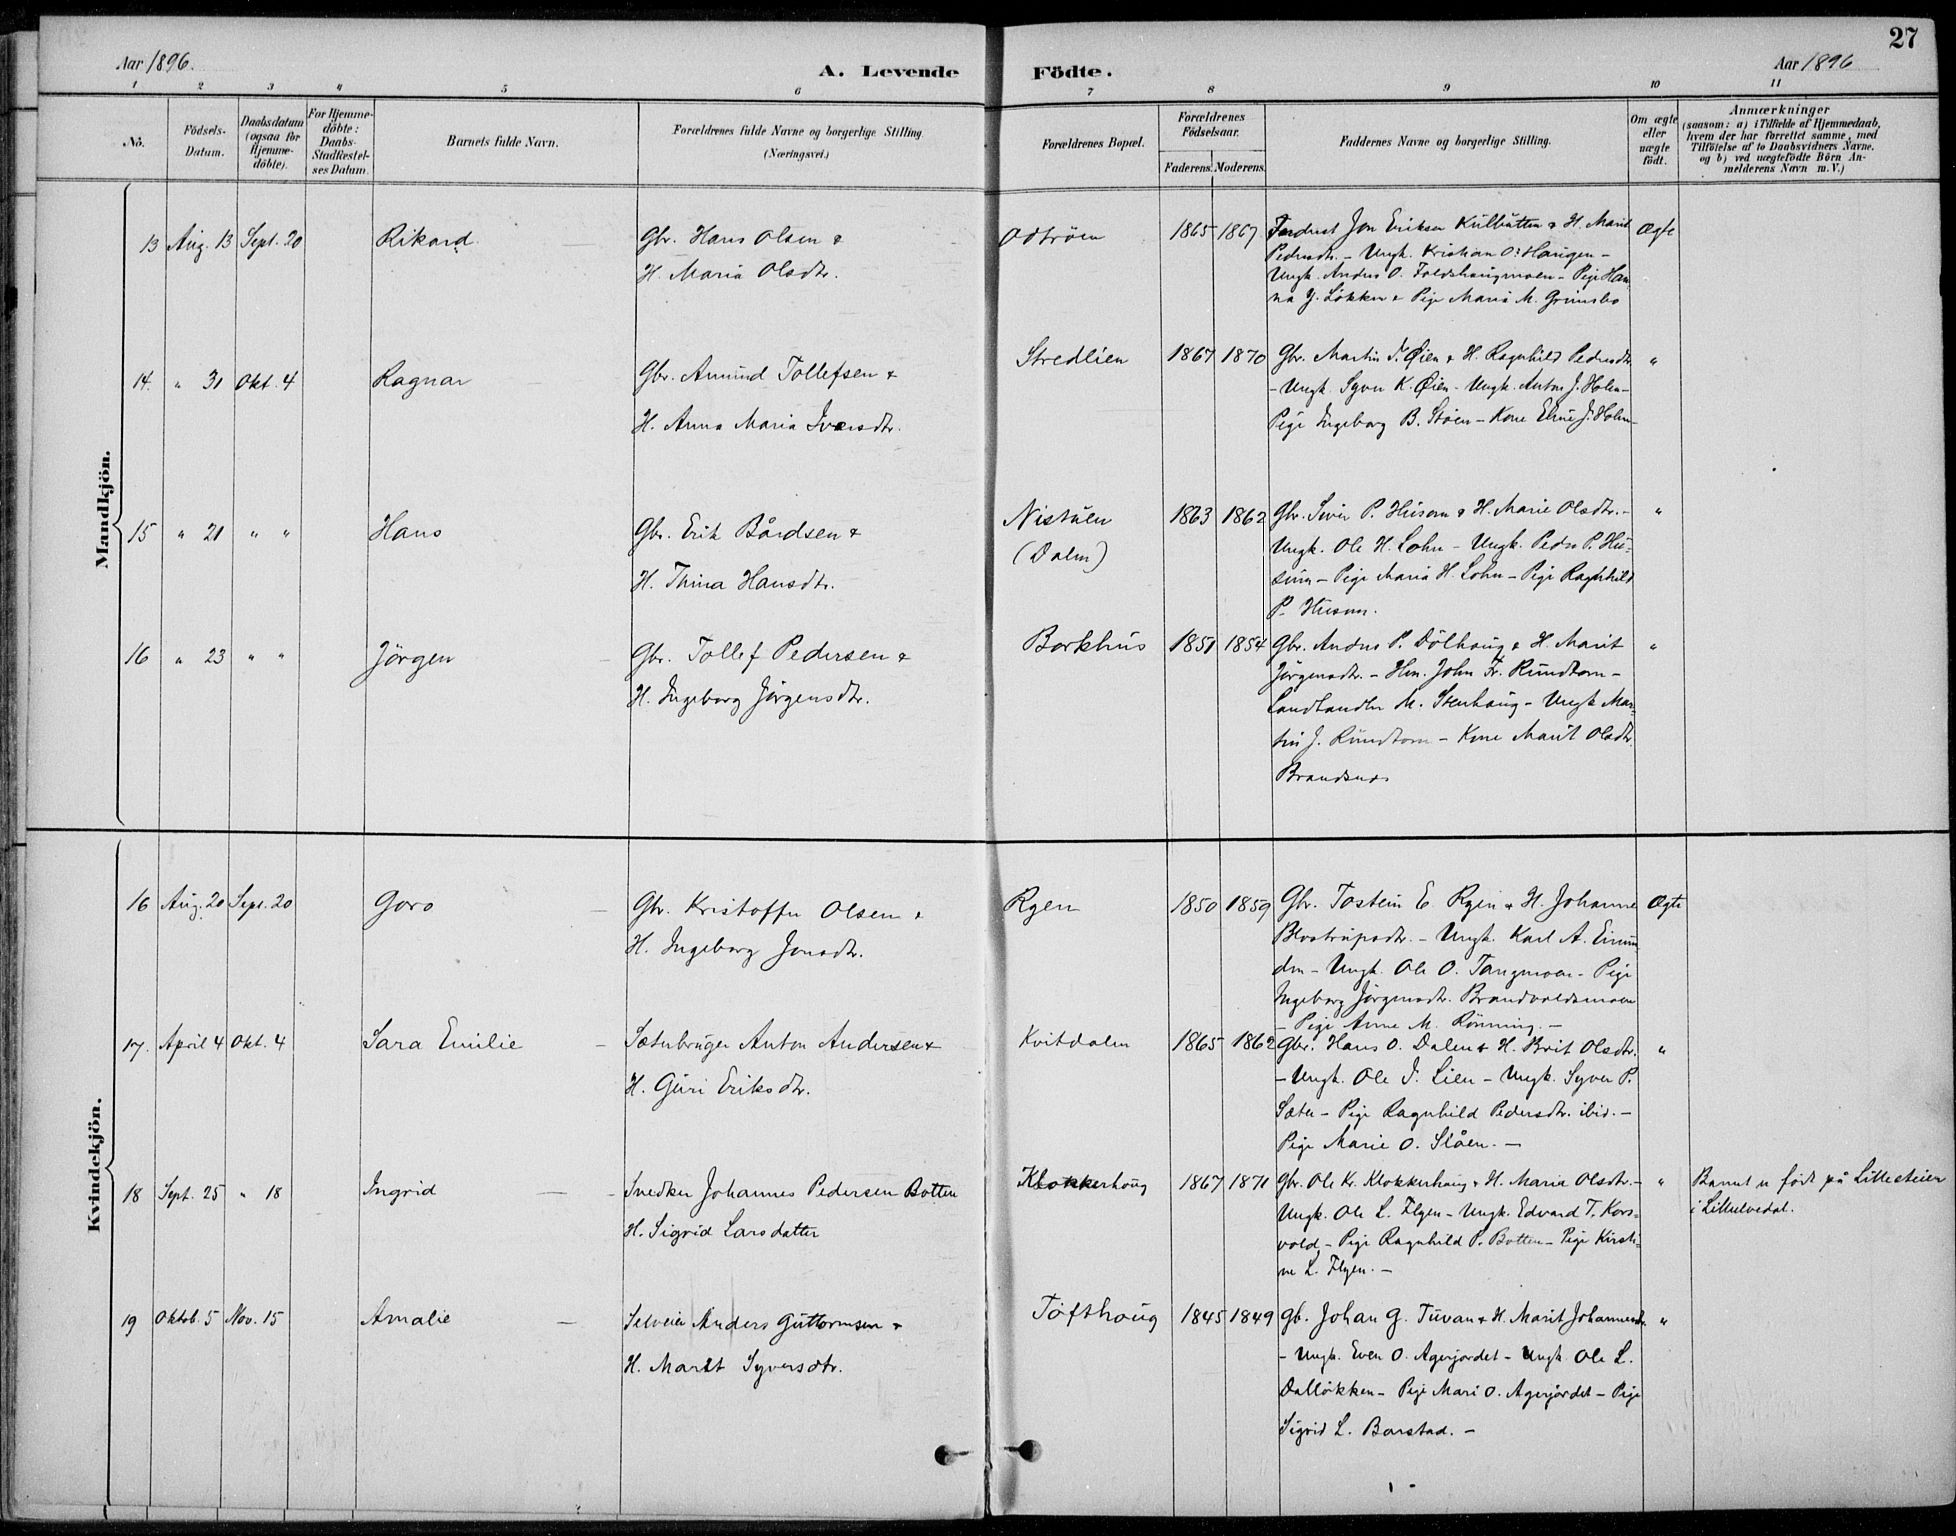 27
Aar 1896.
A. Levende Födte.
Aar 1896
1 2 3 4 5 6 7 8 9 10 11
No.
Födsels-
Datum.
Daabsdatum
(ogsaa for
Hjemme-
döbte).
For Hjemme-
döbte:
Daabs-
Stadfestel-
ses Datum.
Barnets fulde Navn.
Forældrenes fulde Navne og borgerlige Stilling.
(Næringsvei.)
Forældrenes Bopæl.
Forældrenes
Födselsaar.
Faderens. Moderens.
Faddernes Navne og borgerlige Stilling.
Om ægte
eller
uægte
födt.
Anmærkninger
(saasom: a) i Tilfælde af Hjemmedaab,
hvem der har forrettet samme, med
Tilföielse af to Daabsvidners Navne.
og b) ved uægtefödte Börn An-
melderens Navn m. V.)
Mandkjön.
13 Aug. 13 Sept. 20 Rikard
Gbr. Hans Olsen &
H. Maria Olsdtr.
Odtröen 1865 1867
Jon Eriksen Kulbutten & H. Marit
Pedersdtr. - Ungk. Kristian O. Haugen -
Ungk. Anders O. Foldshaugmoen - Pige Han-
na J. Løkken & Pige Maria M. Grimsbo
Ægte
14. " 31 Okt. 4 Ragnar
Gbr. Amund Tollefsen &
H. Anna Maria Iversdtr.
Stredlien 1867 1870
Gbr. Martin T. Øien & H. Ragnhild Pedersdtr.
- Ungk. Syver K. Øien - Ungk. Anton J. Holen -
Pige Ingeborg B. Støen - Kone Eline J. Holen -
"
15 " 21 " " Hans
Gbr. Erik Bårdsen &
H. Thina Hansdtr.
Nistuen
(Dalen)
1863 1862
Gbr. Siver P. Husom & H. Marie Olsdtr. -
Ungk. Ole H. Lohn - Ungk. Peder P. Hu-
sum - Pige Maria H. Lohn - Pige Ragnhild
P. Husum.
"
16 " 23 " " Jörgen
Gbr. Tollef Pedersen &
H. Ingeborg Jörgensdtr.
Borkhus 1851 1854
Gbr. Anders P. Dölhaug & H. Marit
Jörgensdtr. - Hm. John Fr. Rundtom -
Landhandler M. Stenhaug - Ungk Mar-
tin J. Rundtom - Kone Marit Olsdtr.
Brandsnes
"
Kvindekjön.
16 Aug. 20 Sept. 20 Goro
Gbr. Kristoffer Olsen &
H. Ingeborg Jonsdtr.
Ryen 1850 1859
Gbr. Tostein E. Ryen & H. Johanne
Blostrupsdtr. - Ungk. Karl A. Einun-
den - Ungk. Ole O. Tangmoen - Pige
Ingeborg Jörgensdtr. Brandvoldsmoen
- Pige Anne M. Rönning. -
Ægte
17. April 4 Okt. 4 Sara Emilie
Sæterbruger Anton Andersen &
H. Guri Eriksdtr.
Kvitdalen 1865 1862
Gbr. Hans O. Dalen & H. Brit Olsdtr.
- Ungk. Ole J. Lien - Ungk. Syver P.
Sæter - Pige Ragnhild Pedersdtr. ibid. -
Pige Marie O. Slåen. -
"
18 Sept. 25 " 18 Ingrid
Snedker Johannes Pedersen Botten
H. Sigrid Larsdatter
Klokkerhoug 1867 1871
Gbr. Ole Kr. Klokkerhaug & H. Maria Olsdtr. -
Ungk. Ole L. Flyen - Ungk. Edvard T. Kors-
vold, - Pige Ragnhild P. Botten - Pige Kirsti-
ne L. Flyen. -
"
Barnet er født på Lillesteien
i Lilleelvedal.
19 Oktob. 5 Nov. 15 Amalie
Selveier Anders Guttormsen &
H. Marit Syversdtr.
Tofthoug 1845 1849
Gb. Johan G. Tuvan & H. Marit Johannesdtr.
- Ungk. Even O. Agerjordet - Ungk. Ole L.
Dalløkken - Pige Mari O. Agerjordet - Pige
Sigrid L. Barstad. -
"